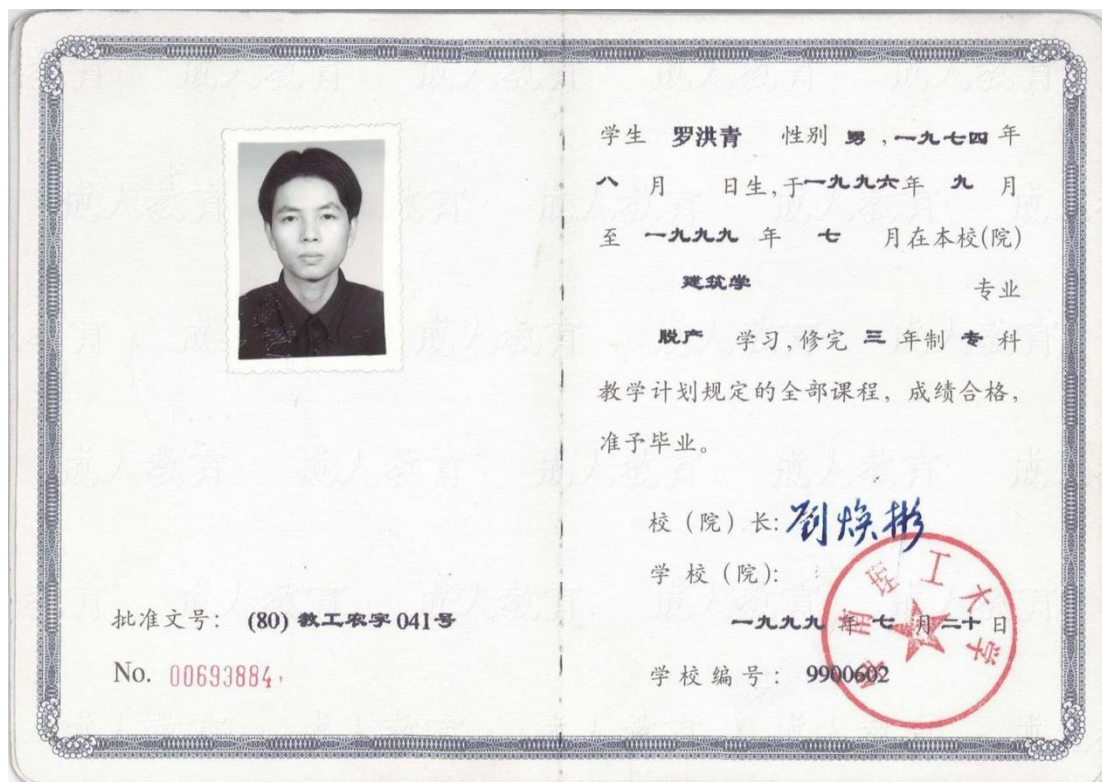 批准文号: (80) 教工农字 041号
No. 00693884
学生 罗洪青 性别 男 , 一九七四 年
八 月 日生, 于 一九九六 年 九 月
至 一九九九 年 七 月在本校(院)
建筑学 专业
脱产 学习, 修完 三 年制 专 科
教学计划规定的全部课程, 成绩合格,
准予毕业。
校 (院) 长: 刘焕彬
学 校 (院):
华南理工大学
一九九九 年 七 月 二十 日
学 校 编 号: 9900602
成人教育